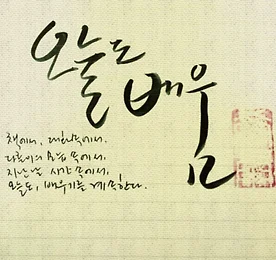 오늘도
배움
책에서, 대화속에서.
다른이의 모습 속에서,
지난날 시간 속에서,
오늘도, 배우기를 계속한다.